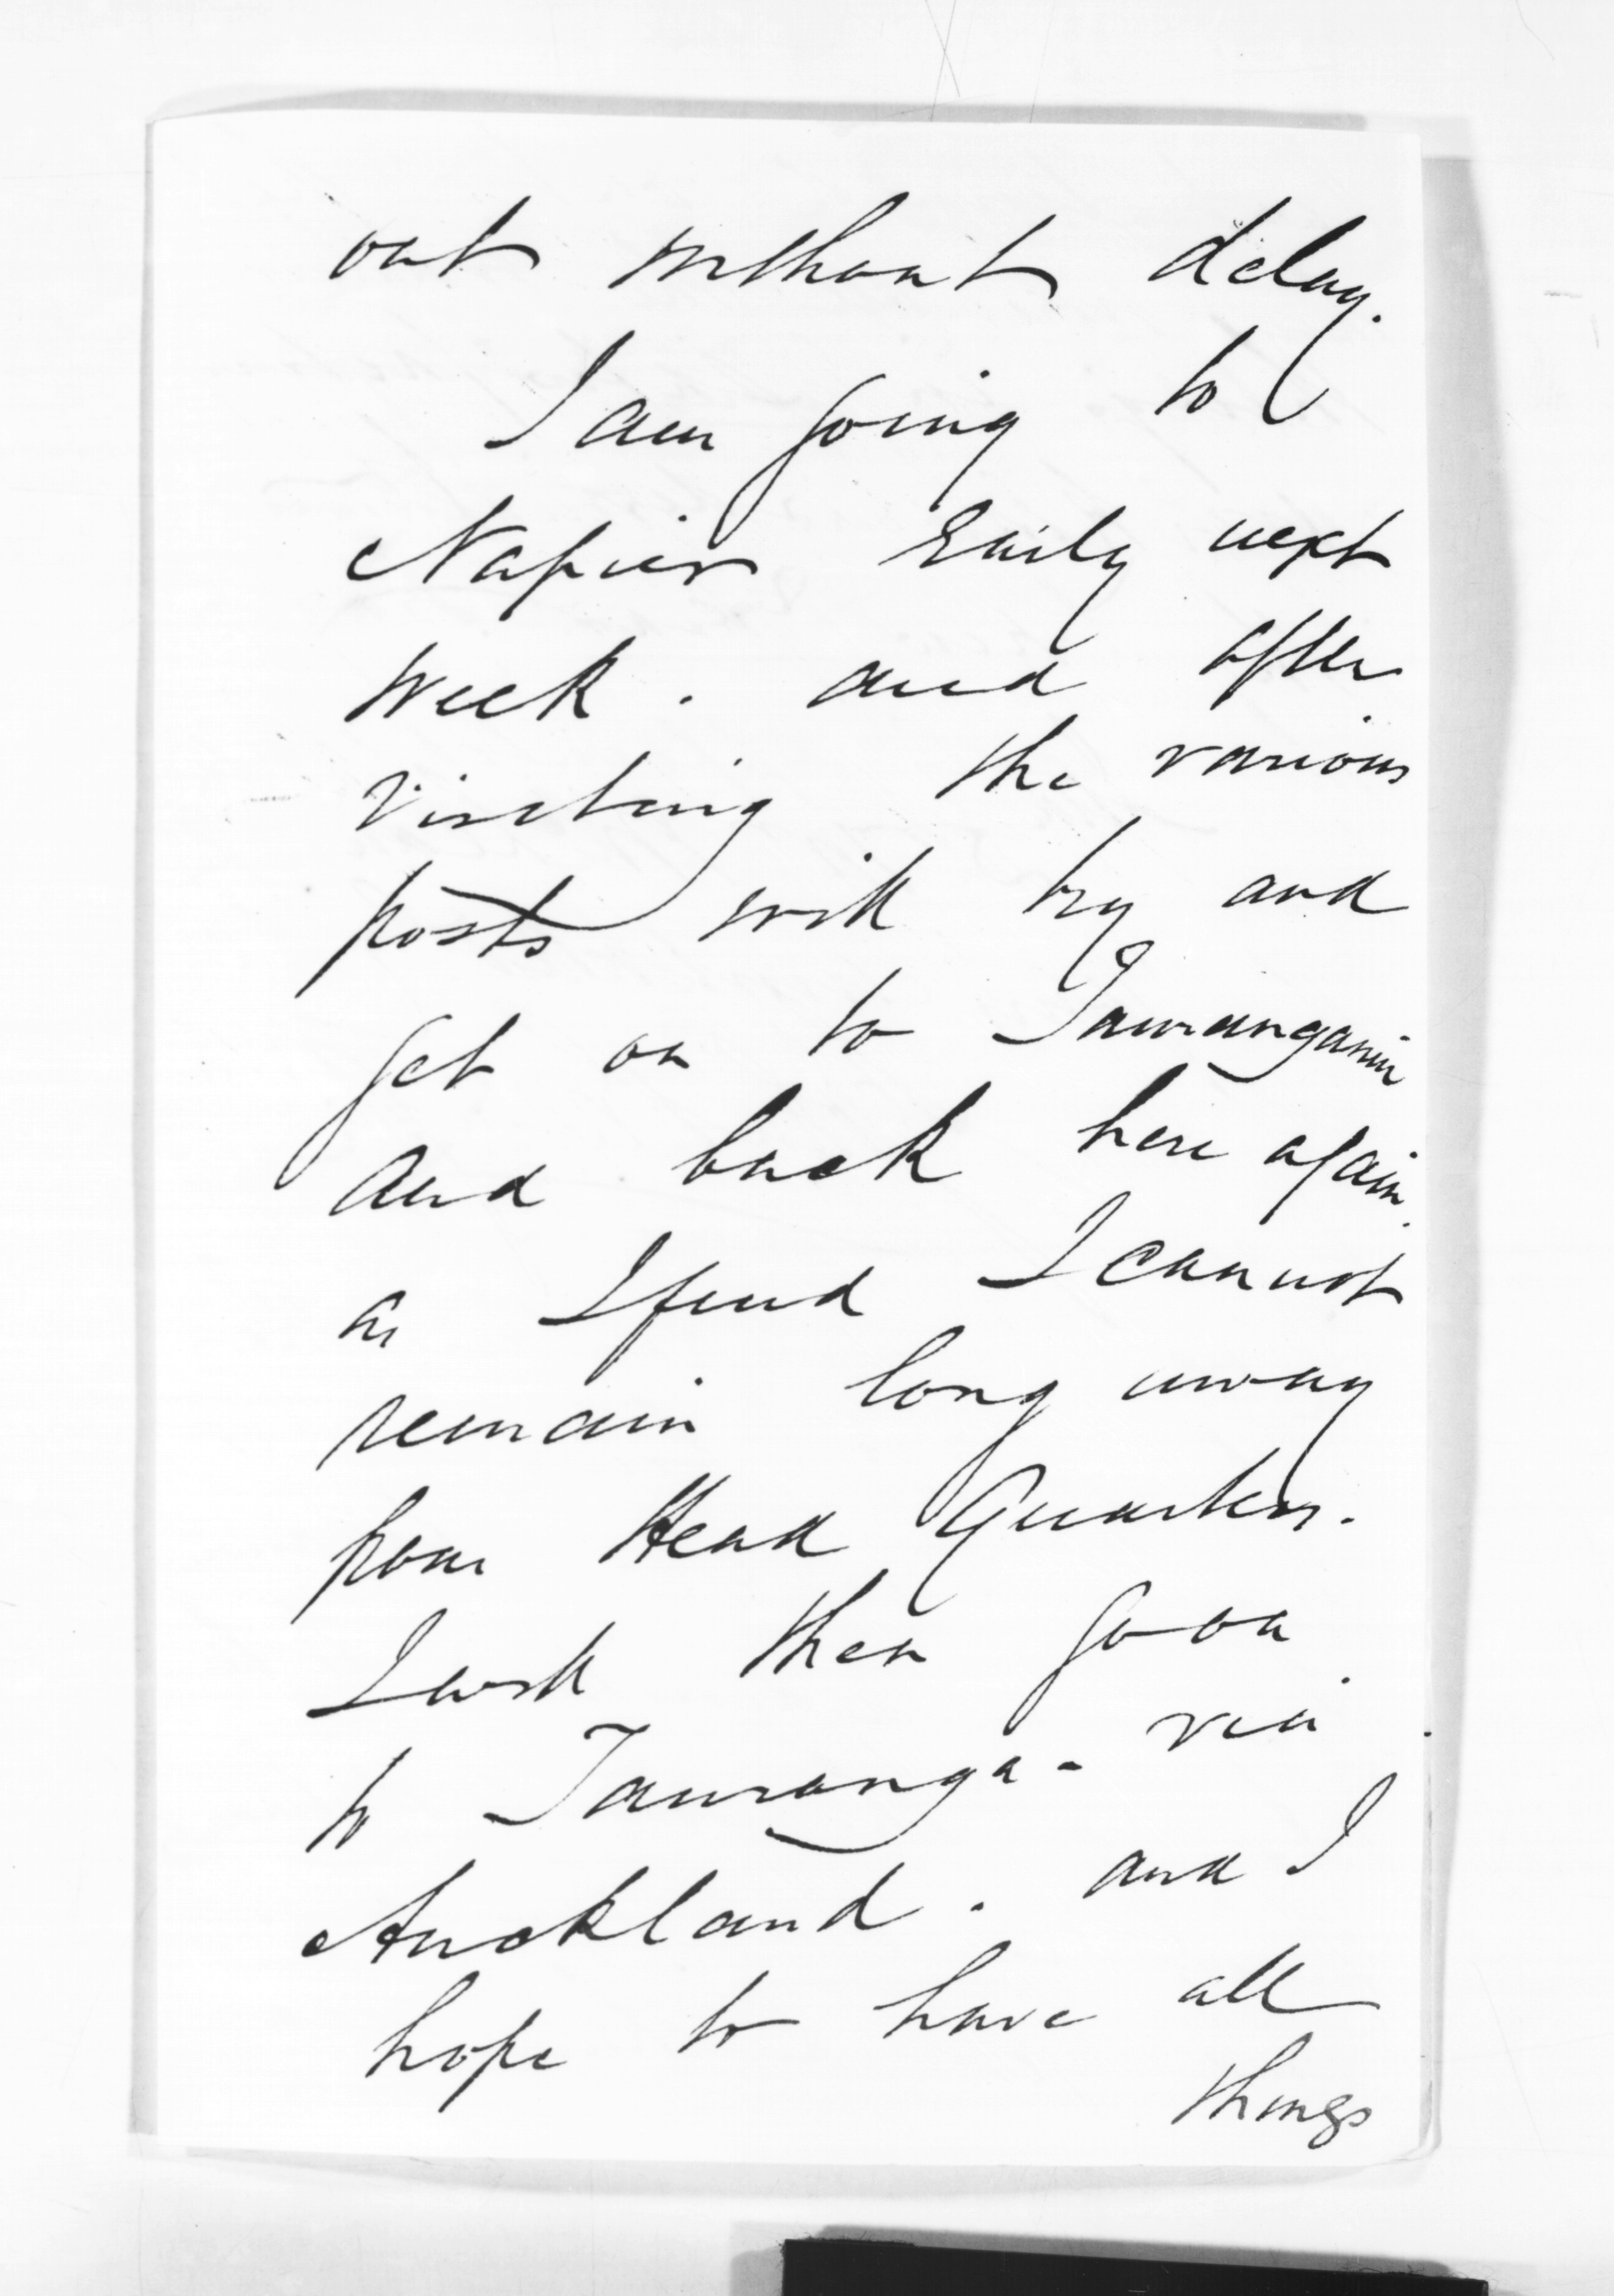 out without delay.
I am going to
Napier Early next
week. and after
visiting the various
posts will try and
get on to Tauranganui
and back here again.
as I find I cannot
remain long away
from Head Quarters.
I will then go on
to Tauranga - via
Auckland. and I
hope to have all
things